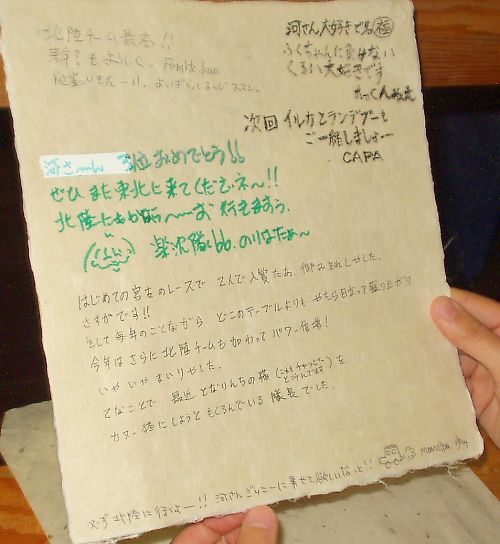 北陸チーム最高!!
来年もよろしく。
河さん大好きです 福
ふくちゃんに負けない
くるい大好きです
次回 イルカとランデブーも
ご一緒しましょー
CAPA
河さ〜ん 3位おめでとう!!
ぜひ、また東北に来てくださいネ〜!!
北陸にもかなら〜〜ず 行きまあす。
楽沈隊bb.のりはたぁ〜
はじめての宮古のレースで 2人で入賞たあ、御みそれしやした。
さすがです!!
そして毎年のことながら どこのテーブルよりも やたら目立って盛り上がり
今年はさらに北陸チームも加わって パワー倍増!
いや いや まいりやした。
てなことで 最近 となりんちの猫 を
カヌー猫にしようともくろんでいる 隊長でした。
必ず 北陸に行くよー!! 河さん に乗せて欲しいなっと!!